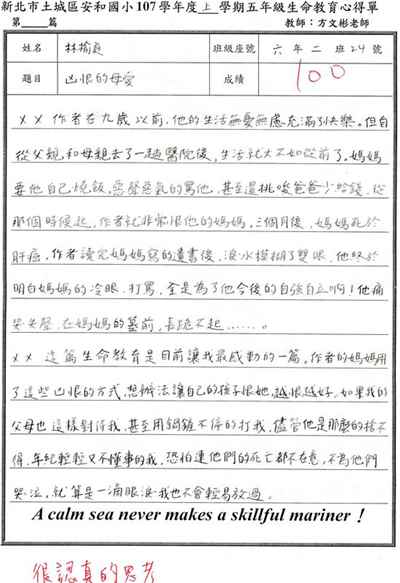 新北市土城區安和國小 107 學年度 上 學期五年級生命教育心得單
第 篇 教師：方文彬老師
姓名 林榆庭 班級座號 六 年 二 班 24 號
篇名 凶恨的母愛 成績 100
ㄨㄨ作者在九歲以前，他的生活無憂無慮充滿了快樂。但自
從父親和母親去了一趟醫院後，生活就大不如從前了。媽媽
要他自己燒飯，惡聲惡氣的罵他，甚至還挑唆爸爸少給錢，從
那個時候起，作者就非常恨他的媽媽。三個月後，媽媽死於
肝癌，作者讀完媽媽寫的遺書後，淚水模糊了雙眼，他終於
明白媽媽的冷眼、打罵，全是為了他今後的自強自立啊！他痛
哭失聲，在媽媽的墓前，長跪不起……。
ㄨㄨ這篇生命教育是目前讓我最感動的一篇，作者的媽媽用
了這些凶恨的方式，想辦法讓自己的孩子恨她，越恨越好，如果我的
父母也這樣對待我，甚至用鍋鏟不停的打我，儘管他是那麼的捨不
得，年紀輕輕又不懂事的我，恐怕連他們的死亡都不在意，不為他們
哭泣，就算是一滴眼淚我也不會輕易放過。
A calm sea never makes a skillful mariner！
很認真的思考